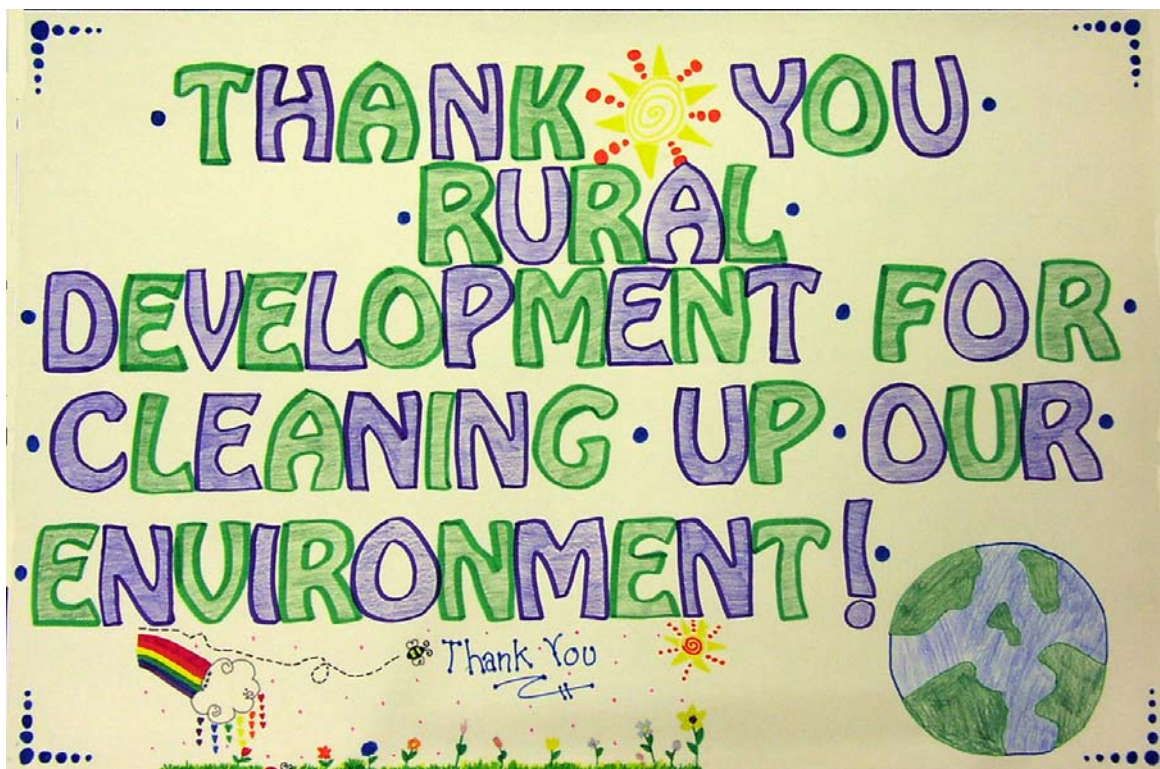 THANK YOU
RURAL
DEVELOPMENT FOR
CLEANING UP OUR
ENVIRONMENT!
Thank You